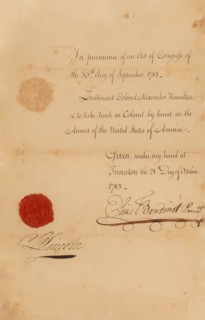 In pursuance of an Act of Congress of
the 30th day of September 1783.
Lieutenant Colonel Alexander Hamilton
is to take rank as Colonel by brevet, in the
Armies of the United States of America.
Given under my hand at
Princeton the 28th Day of October
1783
Elias Boudinot
B Lincoln